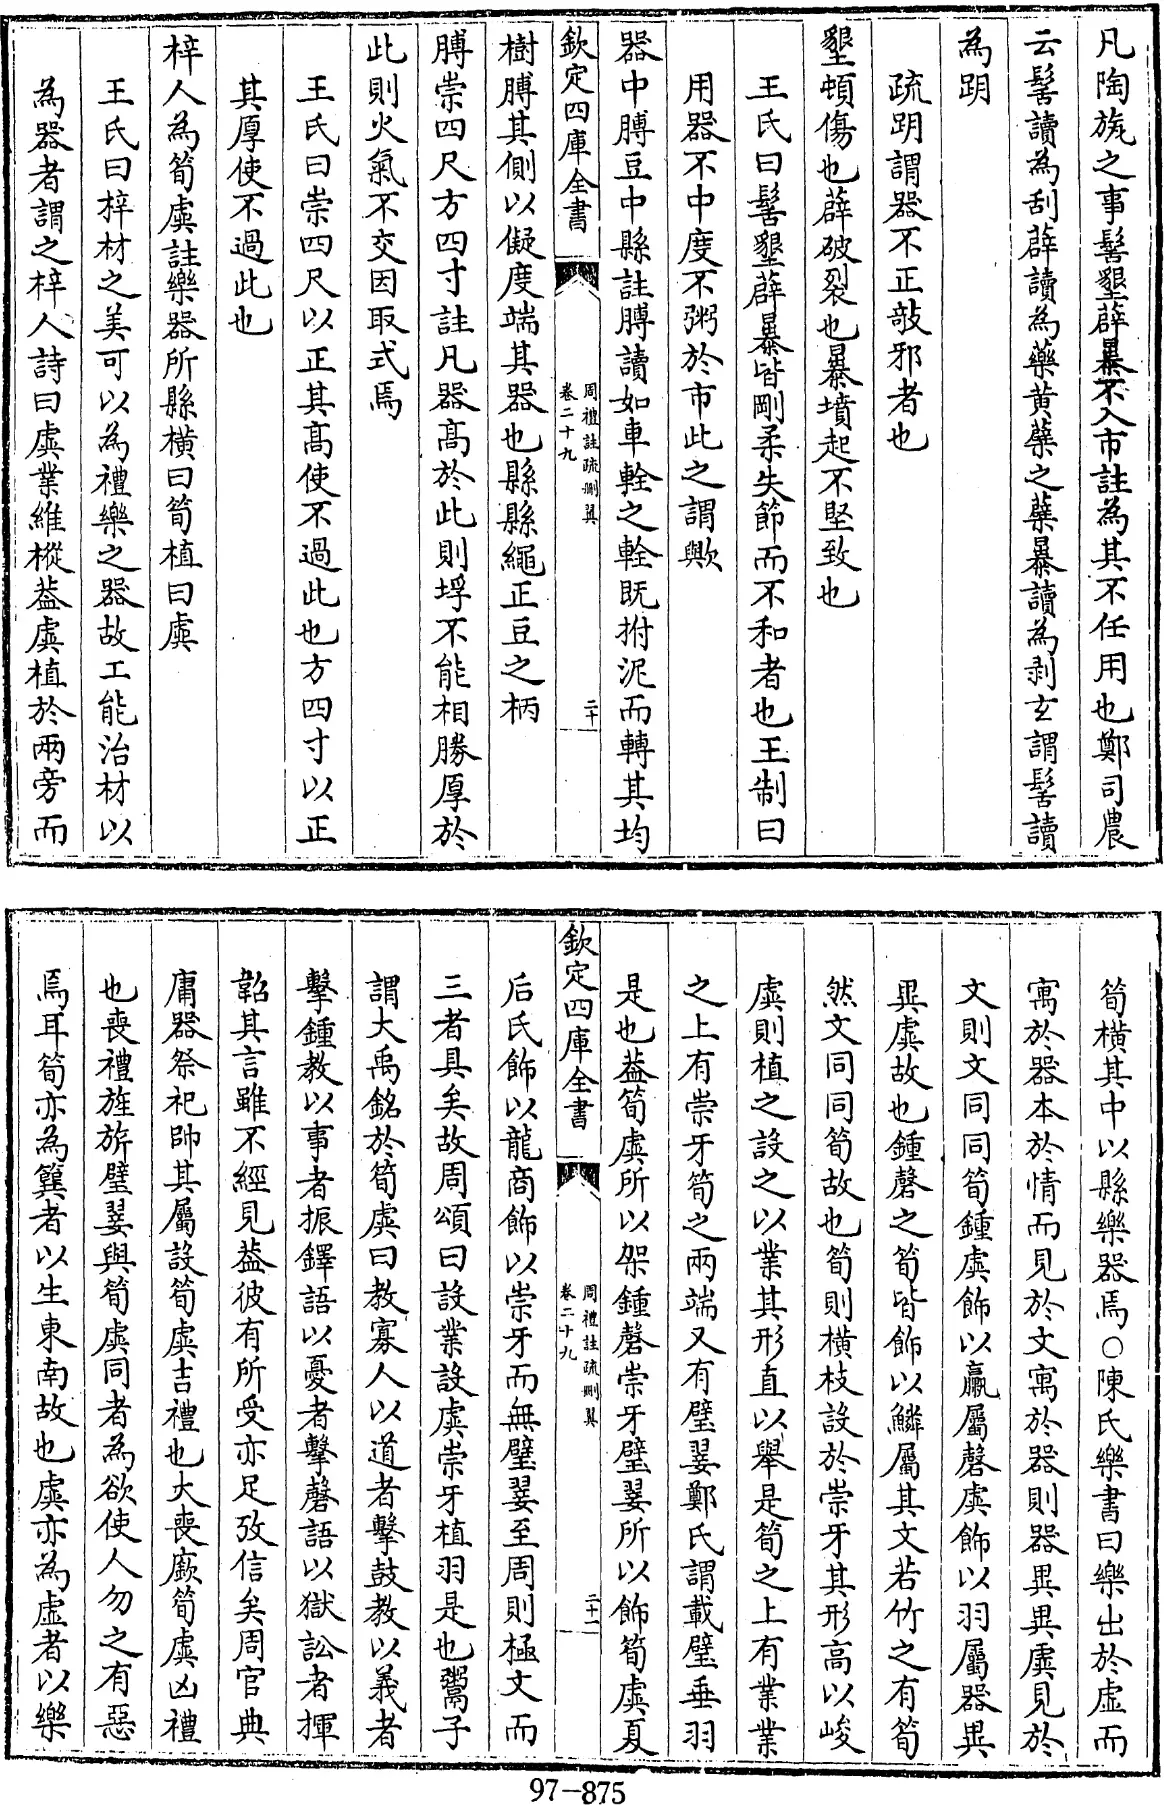 凡陶旊之事髺墾薜暴不入市註為其不任用也鄭司農
云髺讀為刮薜讀為藥黄蘗之蘗暴讀為剥玄謂髺讀
為跀
疏跀謂器不正敧邪者也
墾頓傷也薜破裂也暴墳起不堅致也
王氏曰髺墾薜暴皆剛柔失節而不和者也王制曰
用器不中度不粥於市此之謂歟
器中膞豆中縣註膞讀如車輇之輇既拊泥而轉其均
欽定四庫全書
周禮註疏刪翼
卷二十九
二十
樹膞其側以儗度端其器也縣縣繩正豆之柄
膞崇四尺方四寸註凡器高於此則垺不能相勝厚於
此則火氣不交因取式焉
王氏曰崇四尺以正其高使不過此也方四寸以正
其厚使不過此也
梓人為筍虡註樂器所縣橫曰筍植曰虡
王氏曰梓材之美可以為禮樂之器故工能治材以
為器者謂之梓人詩曰虡業維樅蓋虡植於兩旁而
筍横其中以縣樂器焉○陳氏樂書曰樂出於虛而
寓於器本於情而見於文寓於器則器異異虡見於
文則文同同筍鍾虡飾以臝屬磬虡飾以羽屬器異
異虡故也鍾磬之筍皆飾以鱗屬其文若竹之有筍
然文同同筍故也筍則橫枝設於崇牙其形高以峻
虡則植之設之以業其形直以舉是筍之上有業業
之上有崇牙筍之兩端又有璧翣鄭氏謂載璧垂羽
是也蓋筍虡所以架鍾磬崇牙璧翣所以飾筍虡夏
欽定四庫全書
周禮註疏刪翼
卷二十九
二十一
后氏飾以龍商飾以崇牙而無璧翣至周則極文而
三者具矣故周頌曰設業設虡崇牙植羽是也鬻子
謂大禹銘於筍虡曰教寡人以道者擊鼓教以義者
擊鍾教以事者振鐸語以憂者擊磬語以獄訟者揮
鞀其言雖不經見蓋彼有所受亦足攷信矣周官典
庸器祭祀帥其屬設筍虡吉禮也大喪廞筍虡凶禮
也喪禮旌旂璧翣與筍虡同者為欲使人勿之有惡
焉耳筍亦為簨者以生東南故也虡亦為虛者以樂
97-875